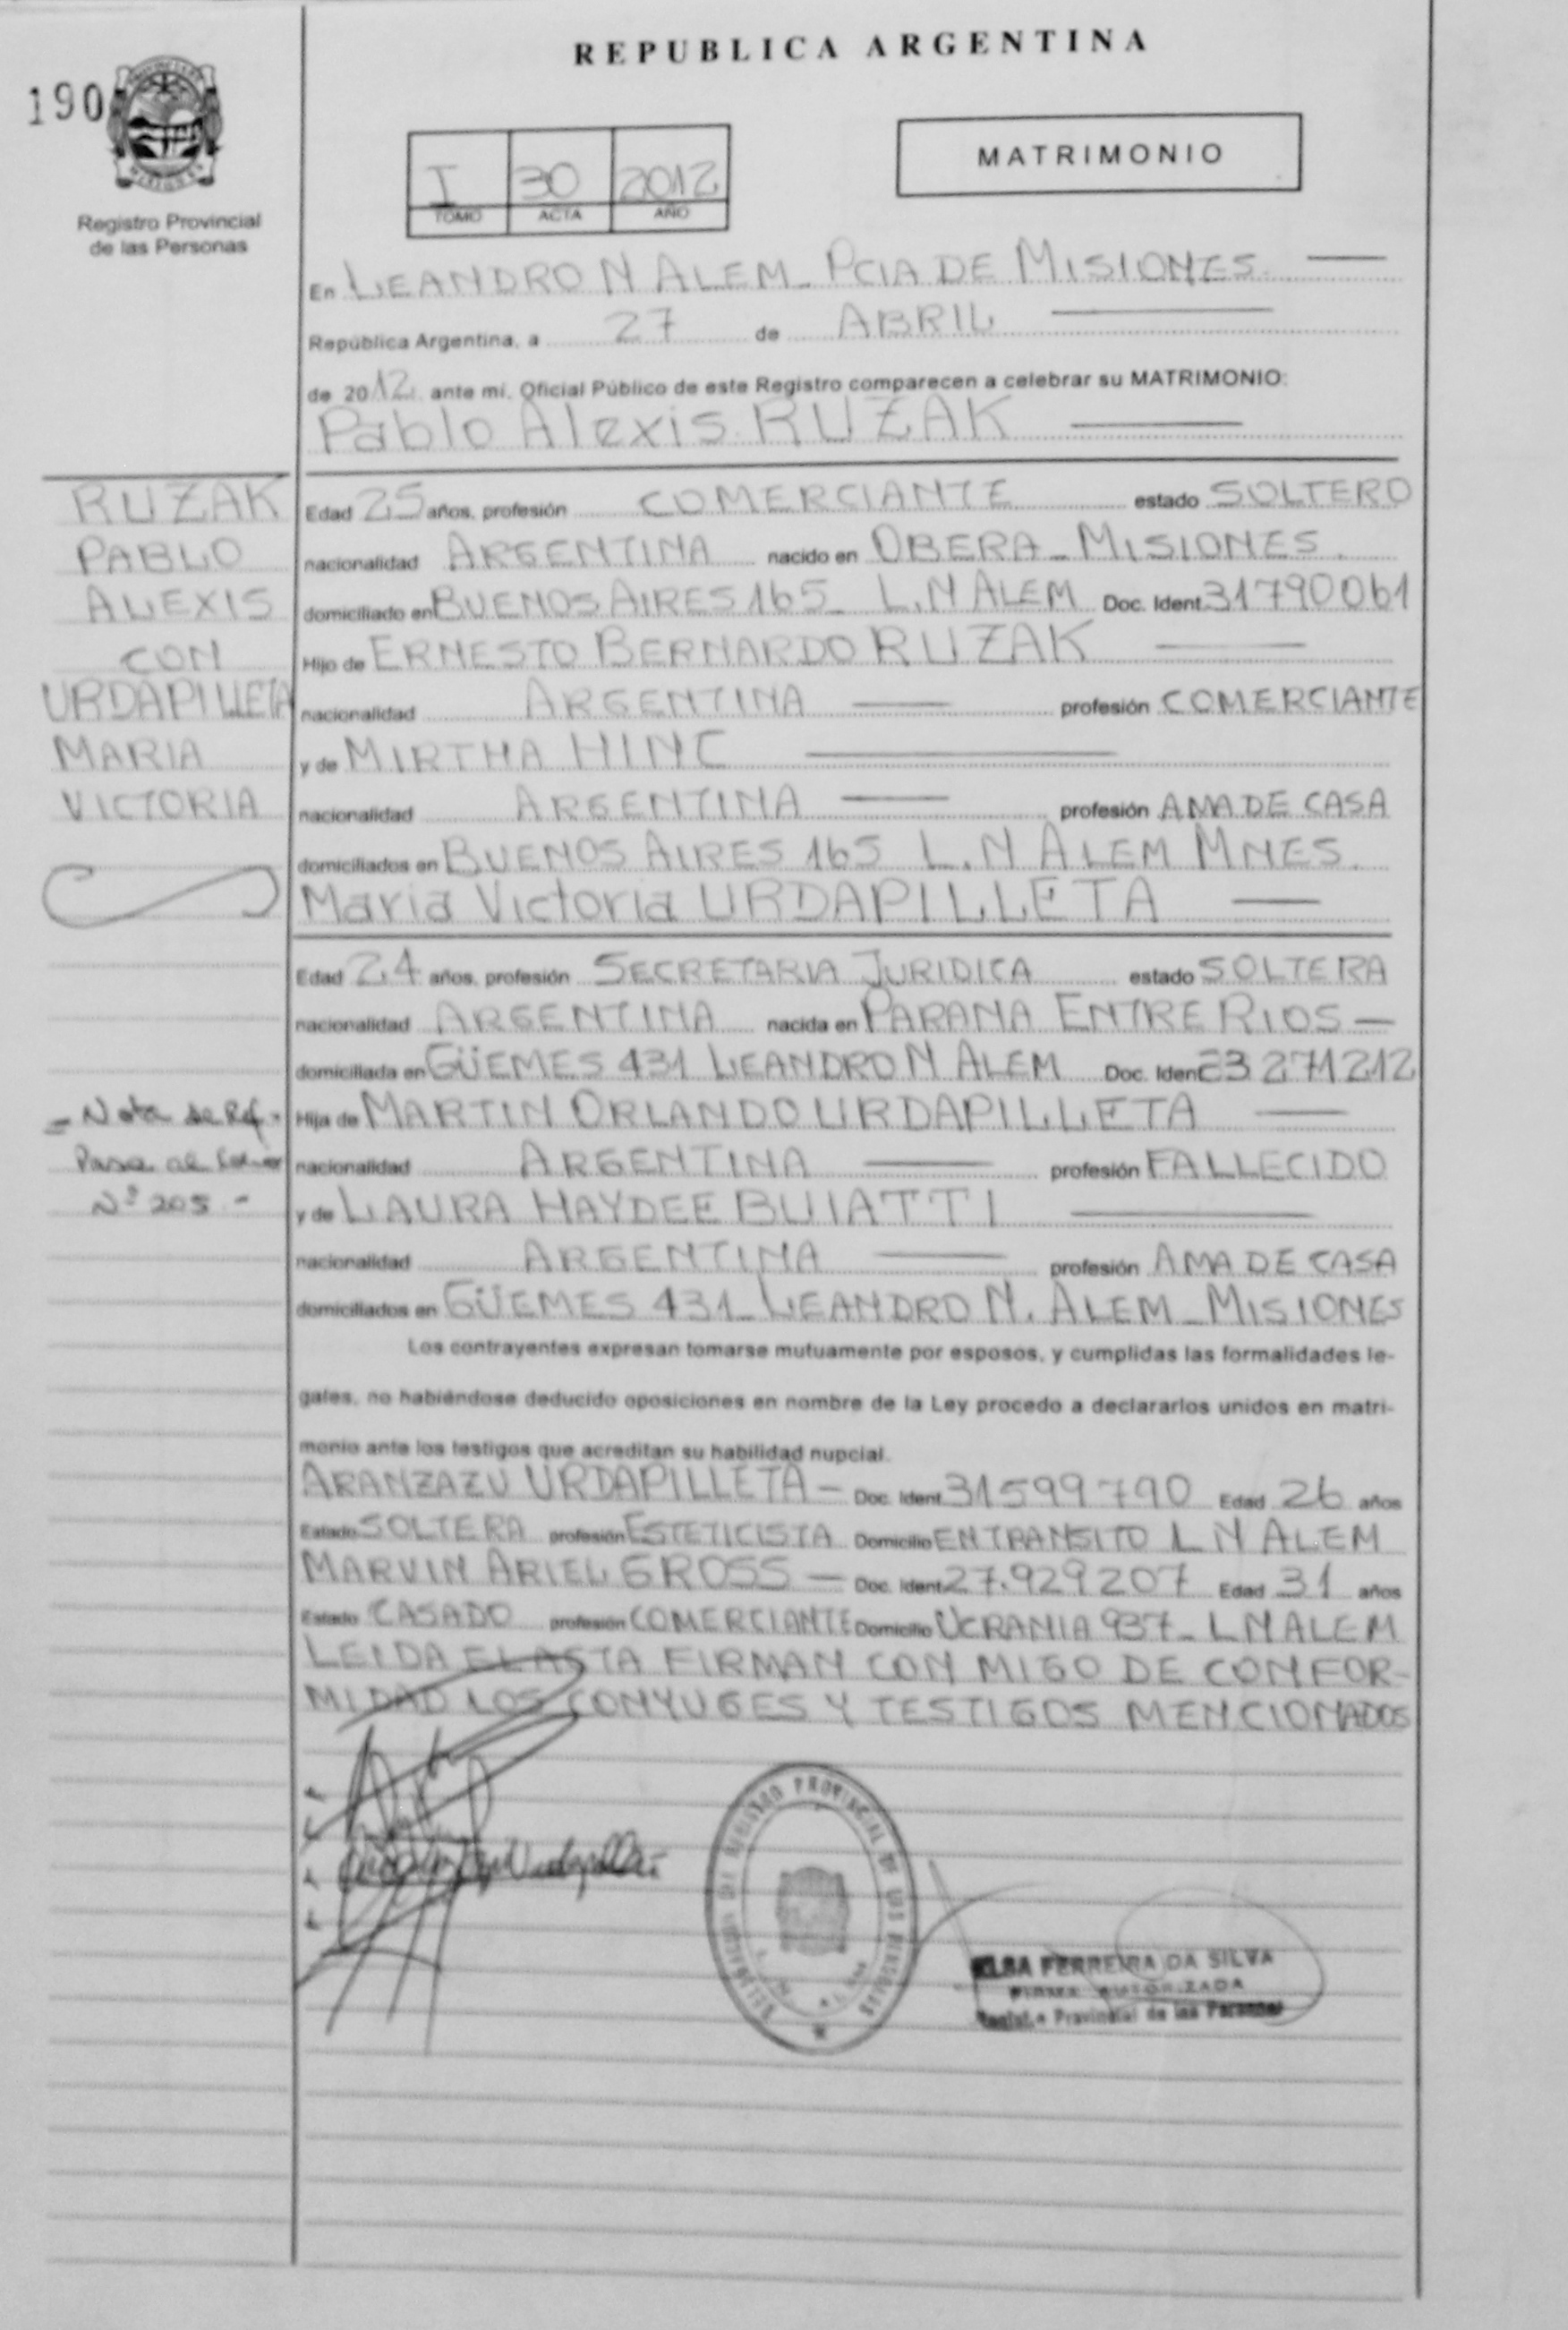 REPUBLICA ARGENTINA
190
MATRIMONIO
I 30 2012
TOMO ACTA AÑO
Registro Provincial
de las Personas
En LEANDRO N ALEM - PCIA DE MISIONES
República Argentina, a 27 de ABRIL
de 2012 ante mí, Oficial Público de este Registro comparecen a celebrar su MATRIMONIO:
Pablo Alexis RUZAK
RUZAK
PABLO
ALEXIS
CON
URDAPILLETA
MARIA
VICTORIA
Edad 25 años, profesión COMERCIANTE estado SOLTERO
nacionalidad ARGENTINA nacido en OBERA - MISIONES.
domiciliado en BUENOS AIRES 165 - L.N ALEM Doc. Ident. 31790061
Hijo de ERNESTO BERNARDO RUZAK
nacionalidad ARGENTINA profesión COMERCIANTE
y de MIRTHA HINC
nacionalidad ARGENTINA profesión AMA DE CASA
domiciliados en BUENOS AIRES 165 L.N ALEM MNES.
Maria Victoria URDAPILLETA
Edad 24 años, profesión SECRETARIA JURIDICA estado SOLTERA
nacionalidad ARGENTINA nacida en PARANA ENTRE RIOS -
domiciliada en GÜEMES 431 LEANDRO N ALEM Doc. Ident 33 271212
Hija de MARTIN ORLANDO URDAPILLETA
nacionalidad ARGENTINA profesión FALLECIDO
y de LAURA HAYDEE BUIATTI
nacionalidad ARGENTINA profesión AMA DE CASA
domiciliados en GÜEMES 431 - LEANDRO N. ALEM - MISIONES
= Nota de Ref.
Pasa al
Nº 205 -
Los contrayentes expresan tomarse mutuamente por esposos, y cumplidas las formalidades le-
gales, no habiéndose deducido oposiciones en nombre de la Ley procedo a declararlos unidos en matri-
monio ante los testigos que acreditan su habilidad nupcial.
ARANZAZU URDAPILLETA - Doc. Ident. 31599790 Edad 26 años
Estado SOLTERA profesión ESTETICISTA Domicilio EN TRANSITO L N ALEM
MARVIN ARIEL GROSS - Doc. Ident. 27.929207 Edad 31 años
Estado CASADO profesión COMERCIANTE Domicilio UCRANIA 937 - L N ALEM
LEIDA EL ASTA FIRMAN CON MIGO DE CONFOR-
MIDAD LOS CONYUGES Y TESTIGOS MENCIONADOS
REGISTRO PROVINCIAL DE LAS PERSONAS
ELSA FERREIRA DA SILVA
FIRMA AUTORIZADA
Registro Provincial de las Personas